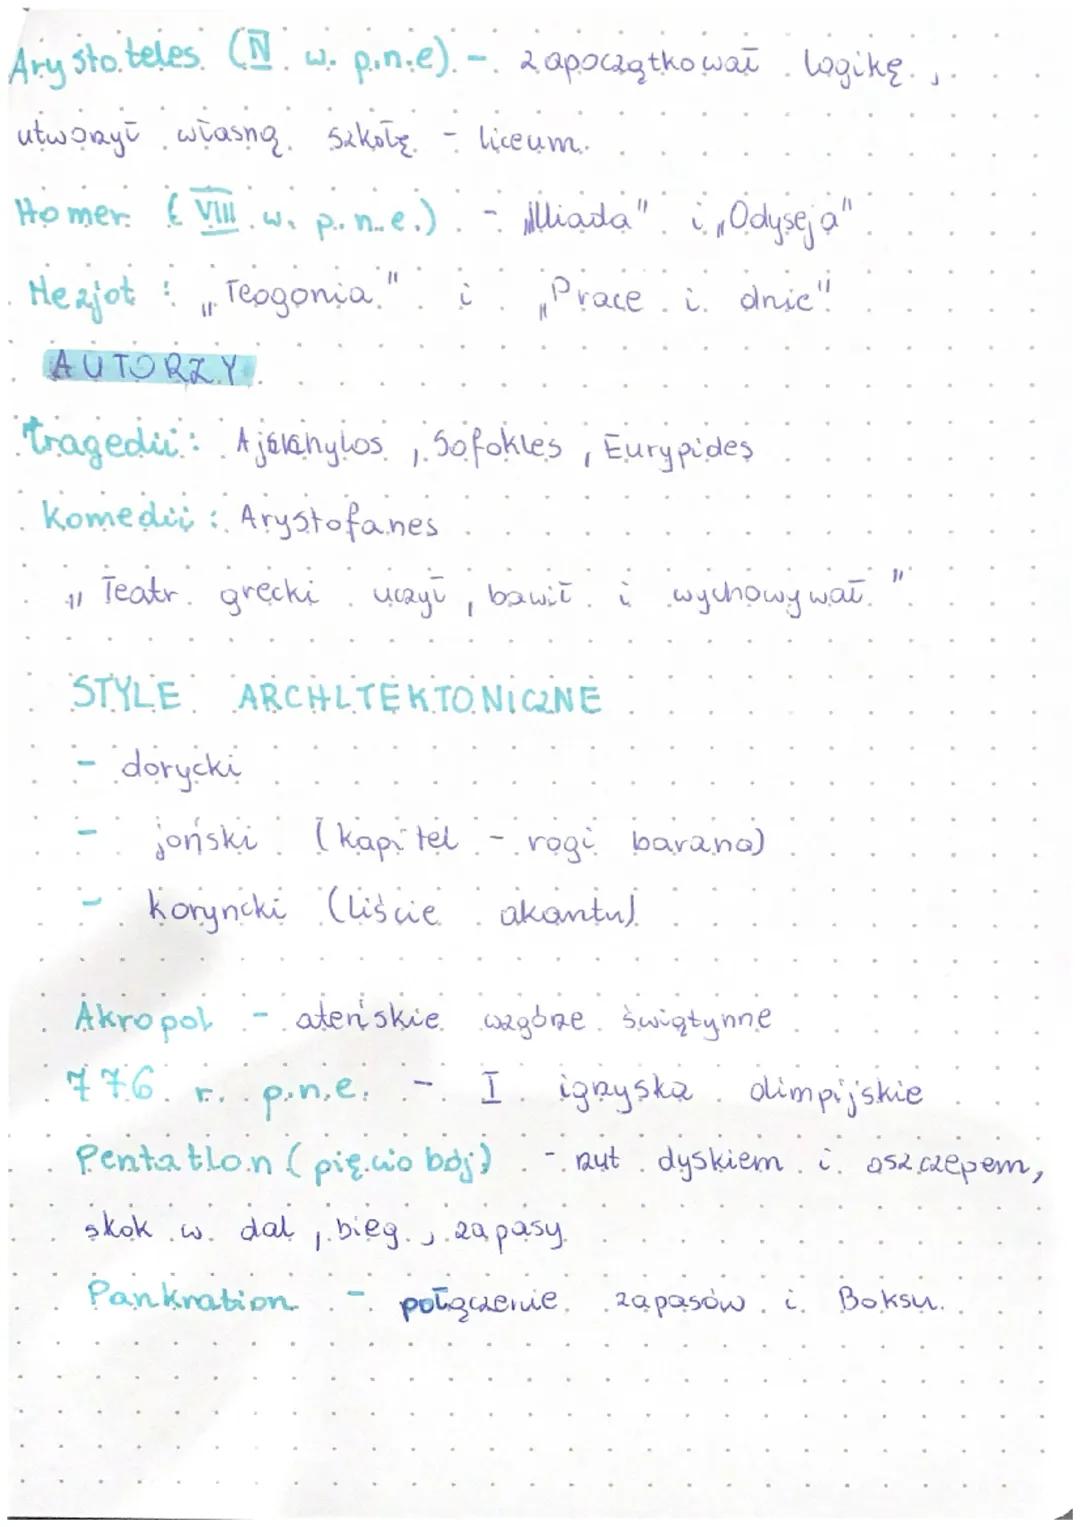 Arystoteles (IV w. p.n.e) - zapoczątkował logikę,
utworzył własną szkołę - liceum.
Homer (VIII w. p.n.e.) - „Iliada" i „Odyseja"
Hezjot : „Teogonia" i „Prace i dnie"
AUTORZY
tragedii: Ajschylos, Sofokles, Eurypides
komedii: Arystofanes
„Teatr grecki uczył, bawił i wychowywał"
STYLE ARCHITEKTONICZNE
- dorycki
- joński (kapitel - rogi barana)
- koryncki (liście akantu)
Akropol - ateńskie wzgórze świątynne
776 r. p.n.e. - I igrzyska olimpijskie
Pentatlon (pięciobój) - rzut dyskiem i oszczepem,
skok w dal, bieg, zapasy
Pankration - połączenie zapasów i Boksu.